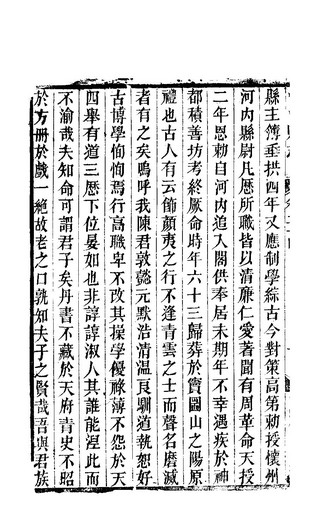 縣主簿垂拱四年又應制學綜古今對策高第勑授懷州
河内縣尉凡歷所職皆以清廉仁愛著聞有周革命天授
二年恩勑自河内追入閣供奉居未期年不幸遇疾於神
都積善坊考終厥命時年六十三歸葬於寶圖山之陽原
禮也古人有云節顏夷之行不逢青雲之士而聲名磨滅
者有之矣嗚呼我陳君敦懿元默浩清温良馴道執恕好
古博學恂恂焉行高職卑不改其操學優祿薄不怨於天
四舉有道三歷下位晏如也非諄諄淑人其誰能涅此而
不渝哉夫知命可謂君子矣丹書不藏於天府青史不昭
於方冊於戲一絶故老之口孰知夫子之賢哉吾與君族